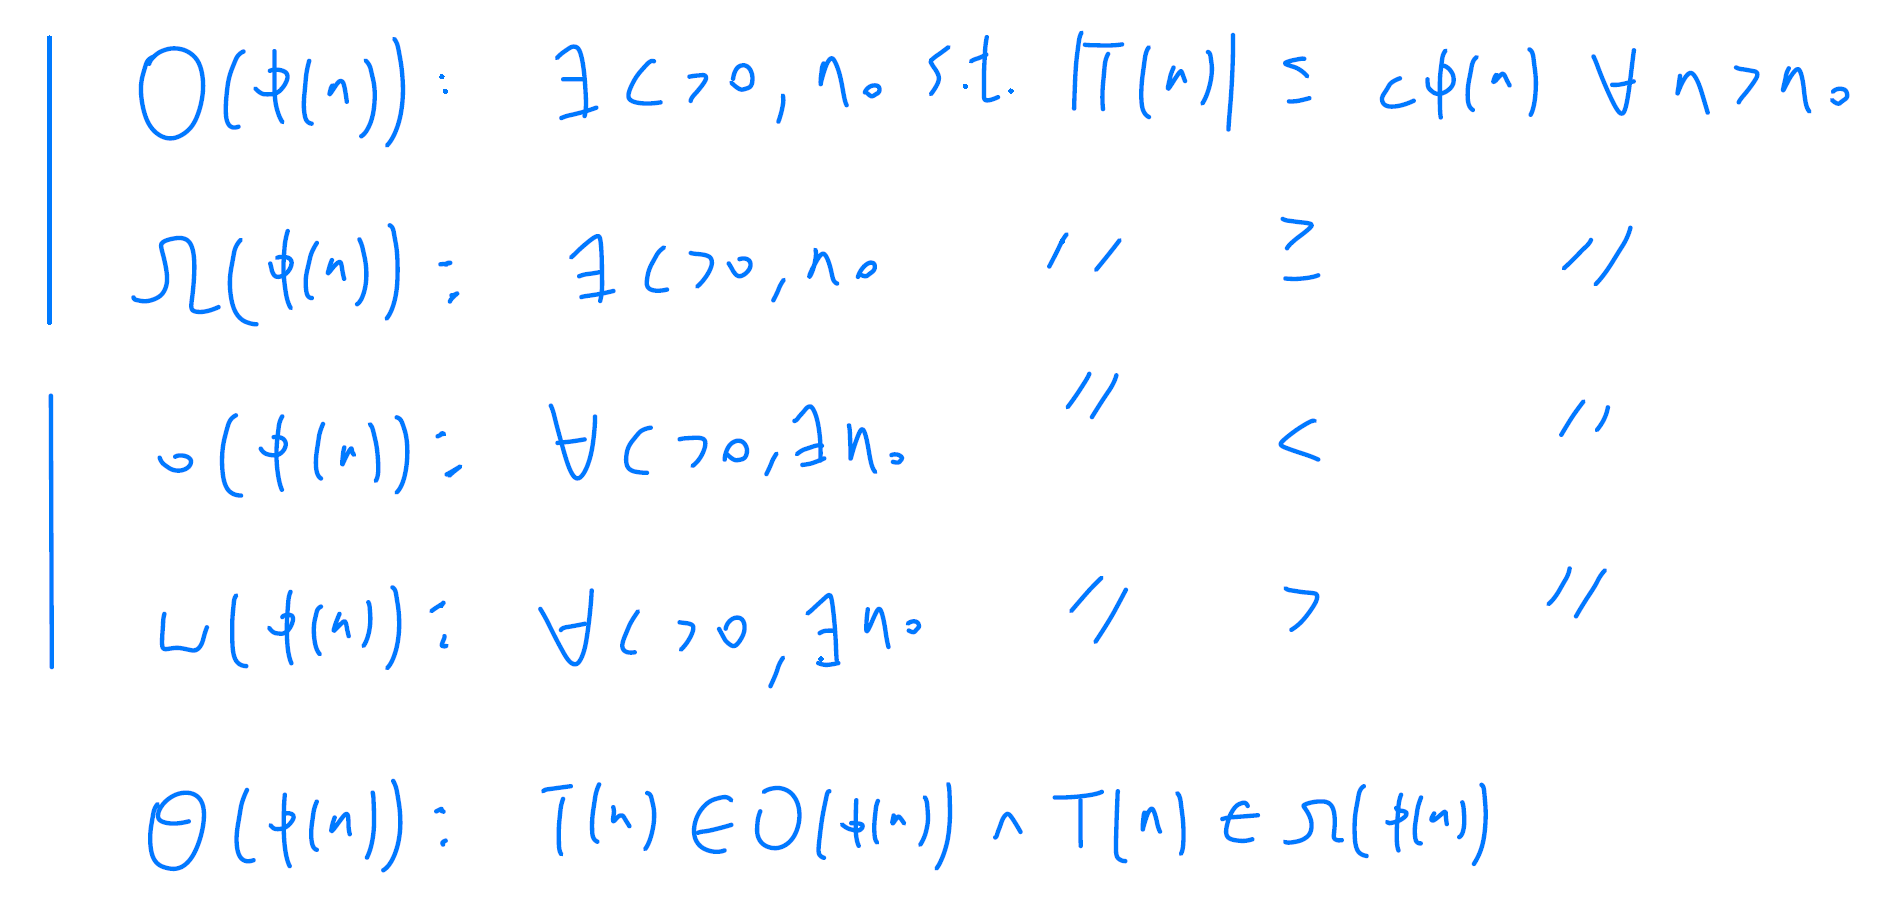 O(φ(n)): ∃ c>0, n₀ s.t. |T(n)| ≤ cφ(n) ∀ n>n₀
Ω(φ(n)): ∃ c>0, n₀ " ≥ "
o(φ(n)): ∀c>0, ∃n₀ " < "
ω(φ(n)): ∀c>0, ∃n₀ " > "
Θ(φ(n)): T(n) ∈ O(φ(n)) ∧ T(n) ∈ Ω(φ(n))